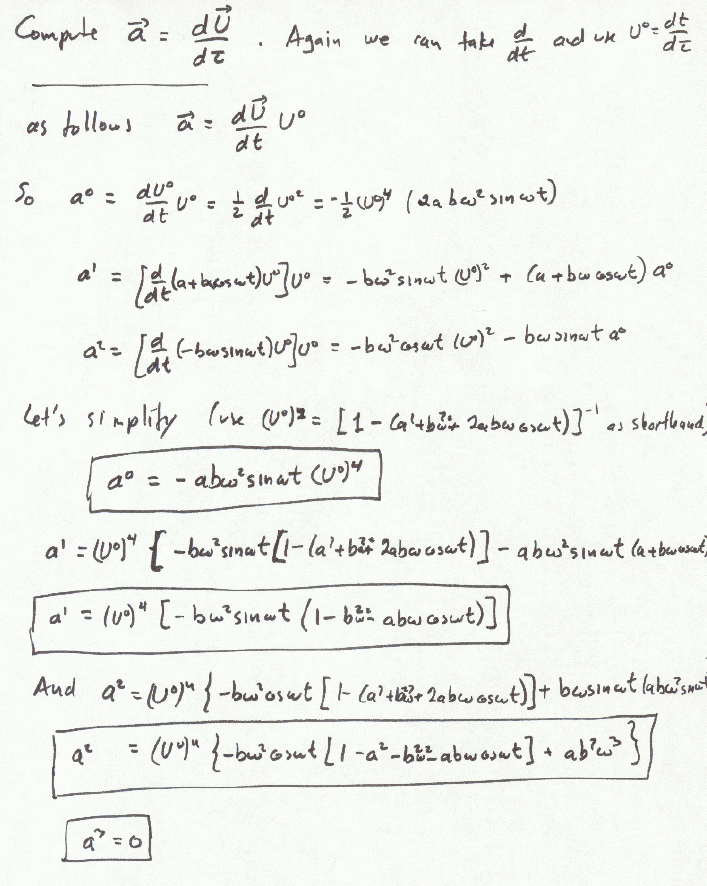 Compute a⃗ = dU⃗/dτ . Again we can take d/dt and use U⁰ = dt/dτ
as follows a⃗ = dU⃗/dt U⁰
So a⁰ = dU⁰/dt U⁰ = ½ d/dt U⁰² = -½ (U⁰)⁴ (2abω² sin ωt)
a¹ = [d/dt (a + bω cos ωt) U⁰] U⁰ = - bω² sin ωt (U⁰)² + (a + bω cos ωt) a⁰
a² = [d/dt (-bω sin ωt) U⁰] U⁰ = - bω² cos ωt (U⁰)² - bω sin ωt a⁰
Let's simplify (use (U⁰)² = [1 - (a² + b²ω² + 2abω cos ωt)]⁻¹ as shorthand)
a⁰ = - abω² sin ωt (U⁰)⁴
a¹ = (U⁰)⁴ { -bω² sin ωt [1 - (a² + b²ω² + 2abω cos ωt)] - abω² sin ωt (a + bω cos ωt)
a¹ = (U⁰)⁴ [- bω² sin ωt (1 - b²ω² - abω cos ωt)]
And a² = (U⁰)⁴ { -bω² cos ωt [1 - (a² + b²ω² + 2abω cos ωt)] + bω sin ωt (abω² sin ωt
a² = (U⁰)⁴ { -bω² cos ωt [1 - a² - b²ω² - abω cos ωt] + ab²ω³ }
a³ = 0